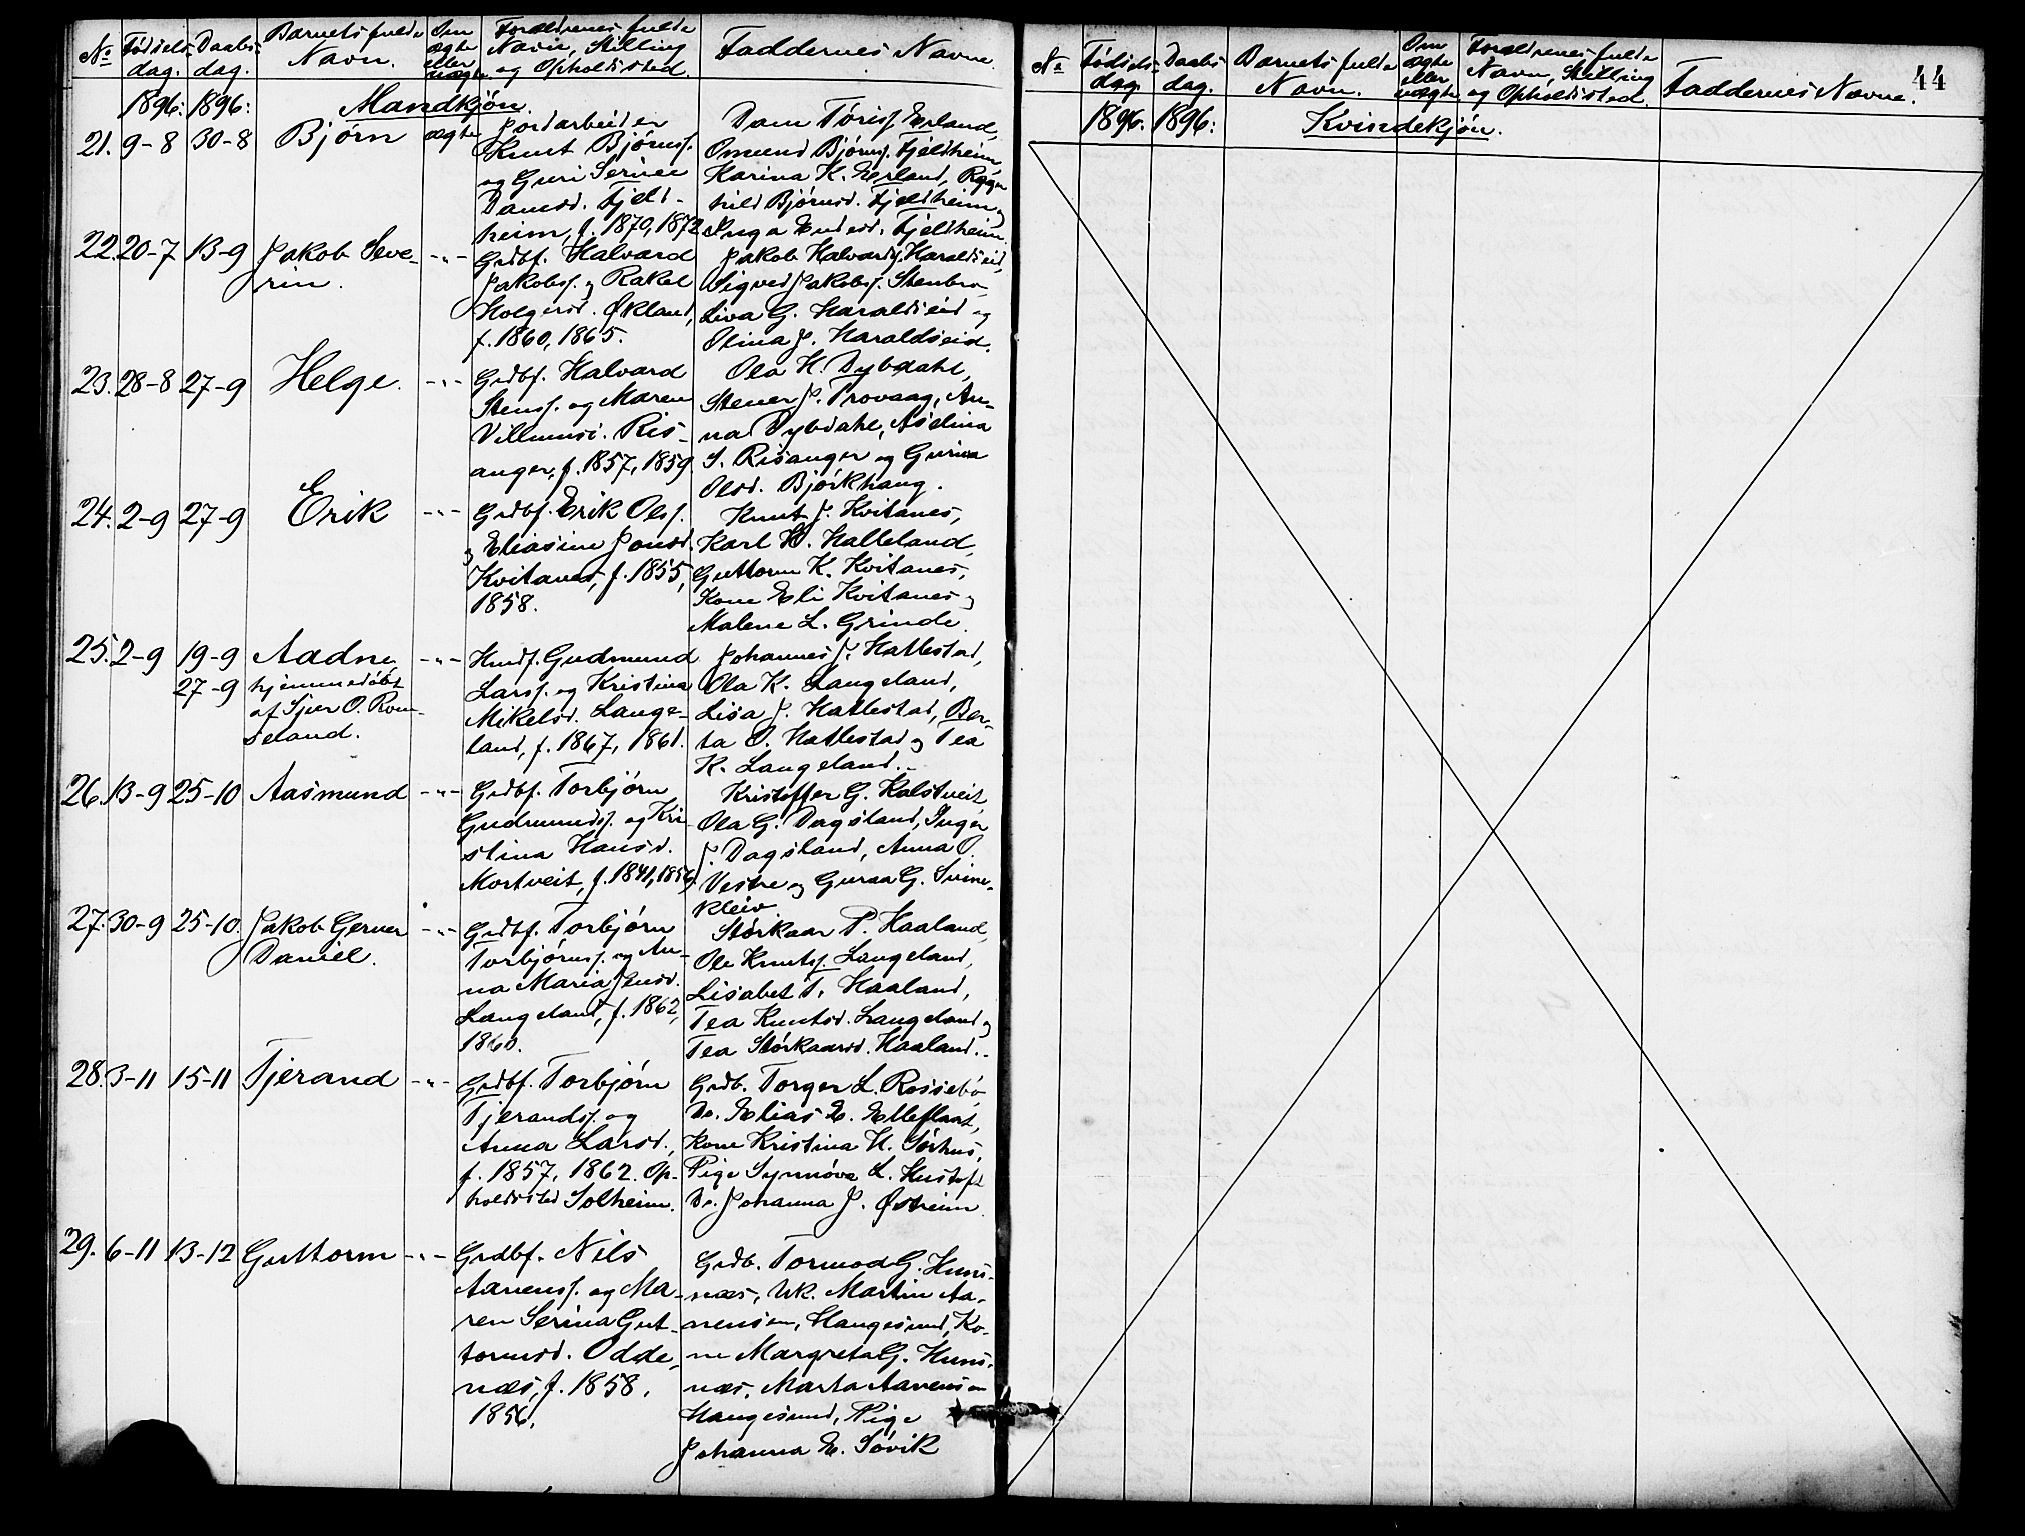 No
Fødsels-
dag.
Daabs-
dag.
Barnets fulde
Navn.
Om
ægte
eller
uægte.
Forældrenes fulde
Navn, Stilling
og Opholdssted.
Faddernes Navne.
1896: 1896: Mandkjøn.
21. 9-8 30-8 Bjørn ægte
Jordarbeider
Knut Bjørnss.
og Guri Serine
Danesd. Fjeld-
heim, f. 1870, 1872
Dane Tøriss. Erland,
Omund Bjørnss. Fjeldheim,
Karina K. Erland, Ragn
hild Bjørnsd. Fjeldheim og
Inga Fjeldheim.
22. 20-7 13-9 Jakob Seve-
rin.
-"-
Grdbf. Halvard
Jakobss. og Rakel
Holgersd. Økland,
f. 1860, 1865.
Jakob Halvards. Haraldseid,
Sigved Jakobss. Stenbro,
Liva G. Haraldseid og
Olina J. Haraldseid.
23. 28-8 27-9 Helge. -"-
Grdbf. Halvard
Stenss. og Maren
Villumsd. Ris-
anger, f. 1857, 1859.
Ola H. Dybdahl,
Stener J. Trovaag, An-
na Dybdahl, Aselina
S. Risanger og Gurina
Olsd. Bjørkhaug.
24. 2-9 27-9 Erik -"-
Grdbf. Erik Olss.
og Eliasine Jonsd.
Kvitanes, f. 1855,
1858.
Knut J. Kvitanes,
Karl H. Halleland,
Guttorm K. Kvitanes,
Kone Eli Kvitanes og
Malene L. Grinde.
25. 2-9 19-9 Aadne,
27-9 hjemmedøbt
af Sjur O. Rom-
seland.
-"-
Husf. Gudmund
Larss. og Kristina
Mikelsd. Lange-
land, f. 1867, 1861.
Johannes J. Hatlestad,
Ola K. Langeland,
Lisa J. Hatlestad, Ber-
ta O. Hatlestad og Tea
K. Langeland.
26. 13-9 25-10 Aasmund -"-
Grdbf. Torbjørn
Gudmunds. og Kri-
stina Hansd.
Mortveit, f. 1841, 1856.
Kristoffer G. Kalstveit,
Ola G. Dagsland, Inger
J. Dagsland, Anna O.
Vestre og Guraa G. Svine-
kleiv
27. 30-9 25-10. Jakob Gerner
Daniel.
-"-
Grdbf. Torbjørn
Torbjørnss. og An-
na Maria Jensd.
Langeland, f. 1862,
1860.
Størkaar P. Haaland,
Ole Knuts. Langeland,
Lisabet T. Haaland,
Tea Knutsd. Langeland og
Tea Størkaarsd. Haaland.
28. 3-11 15-11 Tjerand -"-
Grdbf. Torbjørn
Tjerands. og
Anna Larsd.,
f. 1857, 1862. Op-
holdssted Solheim.
Grdb. Torger L. Rossebø,
Do. Elias E. Elleflaat,
Kone Kristina H. Sørhus,
Pige Synnøve L. Hustoft
Do. Johanna J. Østheim.
29. 6-11 13-12 Guttorm -"-
Grdbf. Nils
Aanens. og Ma-
ren Serina Gut-
tormsd. Odde-
næs, f. 1858,
1856.
Grdb. Tormod G. Huns-
næs, Uk. Martin Aa-
nensen, Haugesund, Ko-
ne Margreta G. Huns-
næs, Marta Aanensen
Haugesund, Pige
Johanna E. Søvik
44
No
Fødsels-
dag.
Daabs-
dag.
Barnets fulde
Navn.
Om
ægte
eller
uægte
Forældrenes fulde
Navn, Stilling
og Opholdssted.
Faddernes Navne.
1896. 1896: Kvindekjøn.